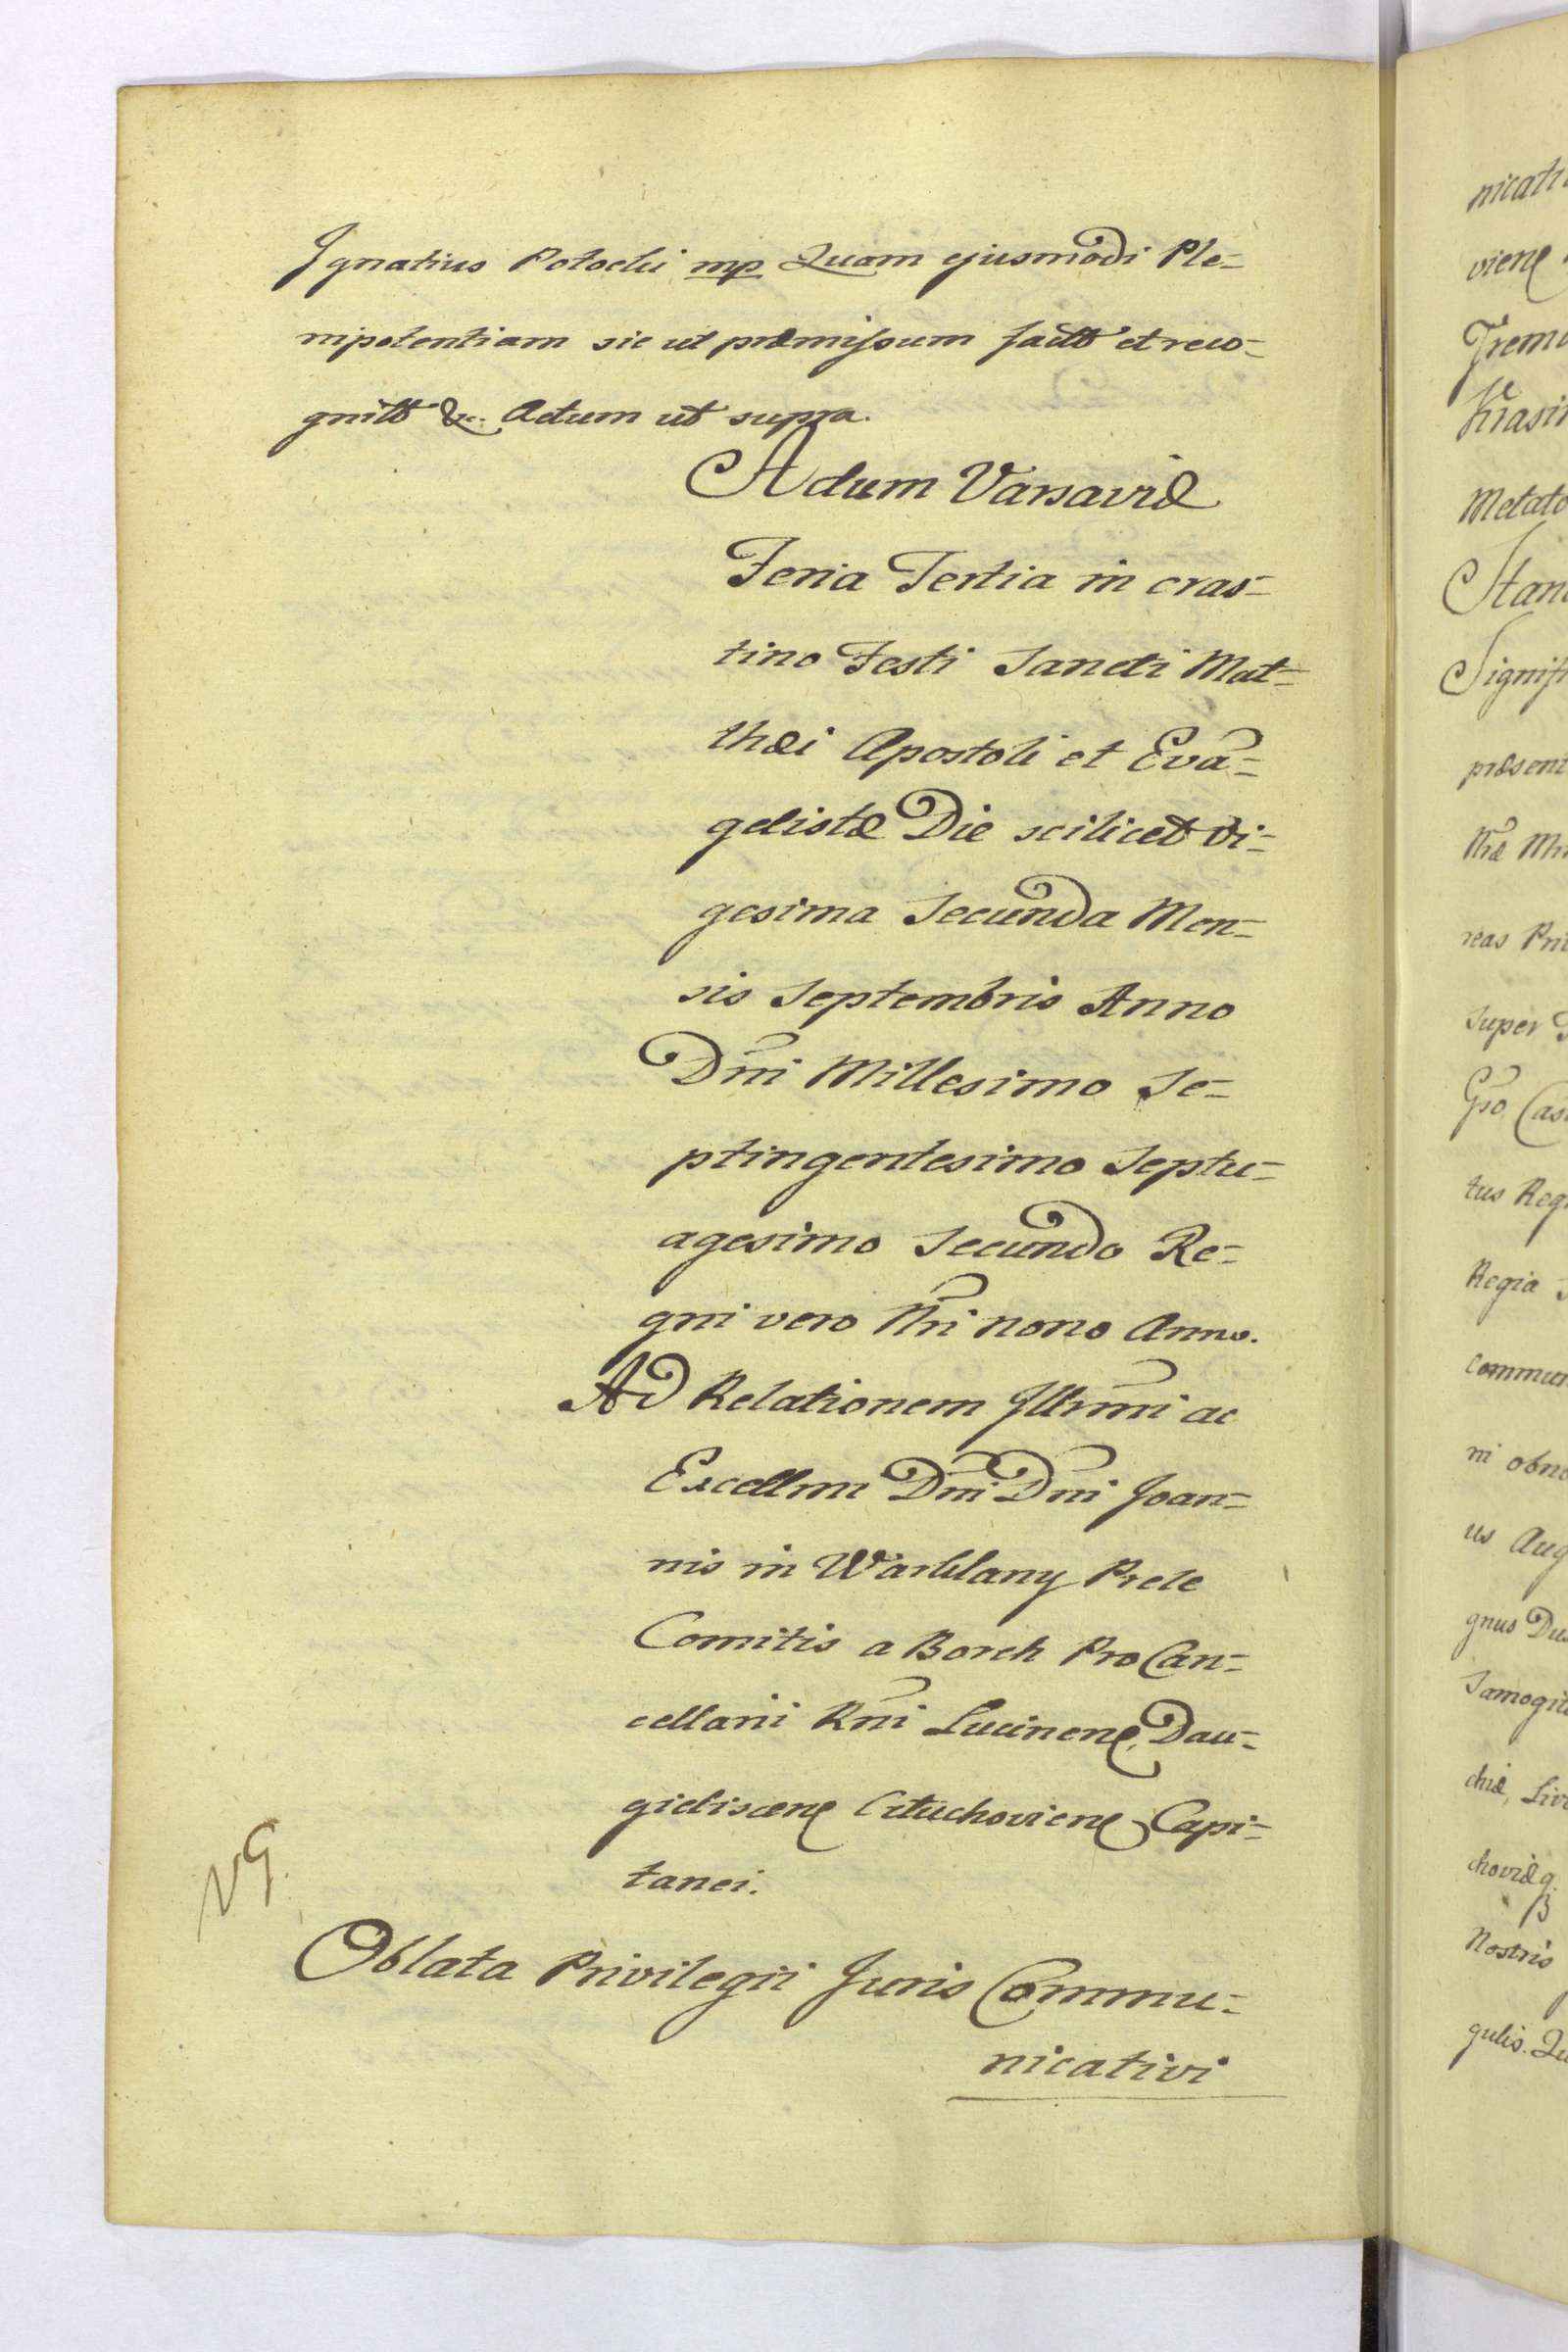 Ignatius Potocki mp Quam ejusmodi Ple=
nipotentiam sic ut præmissum factt et reco=
gnitt &c. Actum ut supra.
Actum Varsaviæ
Feria Tertia in cras=
tino Festi Sancti Mat=
thæi Apostoli et Eva=
gelistæ Die scilicet vi=
gesima Secunda Men=
sis Septembris Anno
Dni Millesimo Se=
ptingentesimo Septu=
agesimo Secundo Re=
gni vero Nri nono Anno.
Ad Relationem Illrmi ac
Excellmi Dni Dni Joan=
nis in Warklany Prele
Comitis a Borch ProCan=
cellarii Rni Lucinen, Dau=
gieliscen Cituchovien Capi=
tanei.
NG.
Oblata Privilegii Juris Commu=
nicativi
nicati
vien
Trem
Krasi
Metato
Stan
Signifi
præsent
Nræ
reas Pri
super
Gro Cas
tus Reg
Regia
commun
ni obno
us Aug
gnus Du
Samogit
chiæ, Liv
choviæq
Nostris
gulis. Qu